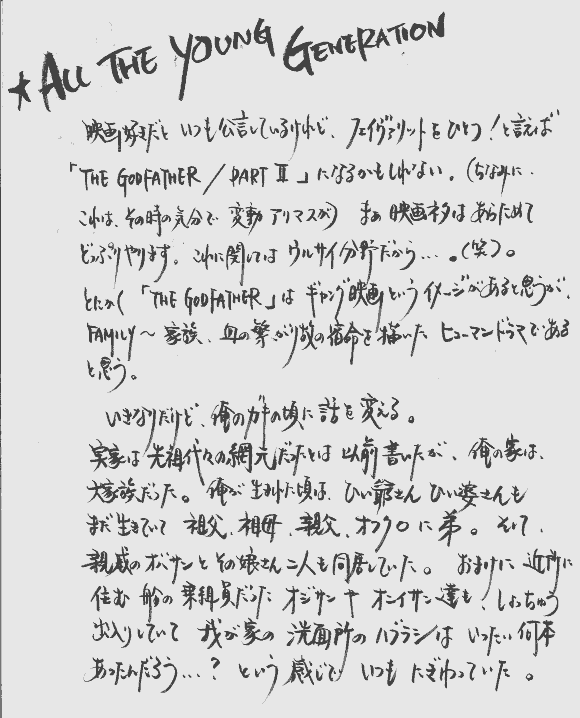 ★ALL THE YOUNG GENERATION
映画好きだと いつも公言しているけれど、フェイヴァリットをひとつ！と言えば
「THE GODFATHER／PART II」になるかもしれない。（ちなみに、
これは、その時の気分で 変動アリマスが） まぁ 映画ネタはあらためて
どっぷりやります。これに関しては ウルサイ分野だから…。（笑）。
とにかく「THE GODFATHER」は ギャング映画というイメージがあると思うが、
FAMILY〜家族、血の繋がり故の宿命を描いた ヒューマンドラマである
と思う。
いきなりだけど、俺のガキの頃に話を変える。
実家は先祖代々の網元だったとは以前書いたが、俺の家は、
大家族だった。俺が生まれた頃は、ひい爺さん ひい婆さんも
まだ生きていて 祖父、祖母、親父、オフクロに弟。そして、
親戚のオバサンとその娘さん二人も同居していた。おまけに近所に
住む 船の乗組員だった オジサンや オニイサン達も、しょっちゅう
出入りしていて 我が家の 洗面所のハブラシは いったい何本
あったんだろう…？という感じで いつも にぎわっていた。